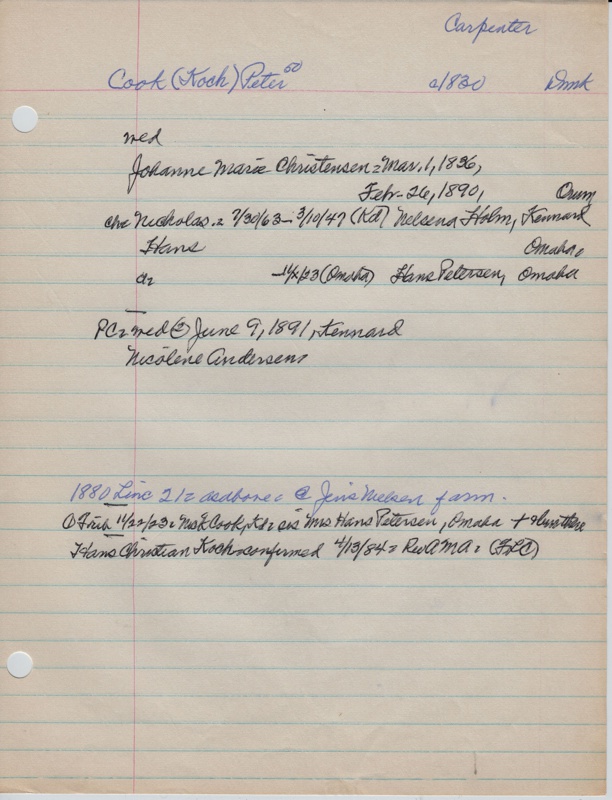 Carpenter
Cook (Koch) Peter 50 c/830 Dmk
wed
Johanne Marie Christensen = Mar. 1, 1836,
Feb- 26, 1890, Orum
chr Nicholas = 7/30/63 - 3/10/47 (Kd) Nelsena Holm, Kennard
Hans Omaha
dr -11/x/23 (Omaha) Hans Petersen, Omaha
PC = wed @ June 9, 1891, Kennard
Nicolene Andersen
1880 Linc 21 = as above = @ Jens Nielsen farm.
Trib 11/22/23 = Ns Cook, Kd = sis Mrs Hans Petersen, Omaha +
Hans Christian Koch = confirmed 4/13/84 = Rev AMA = (FLC)